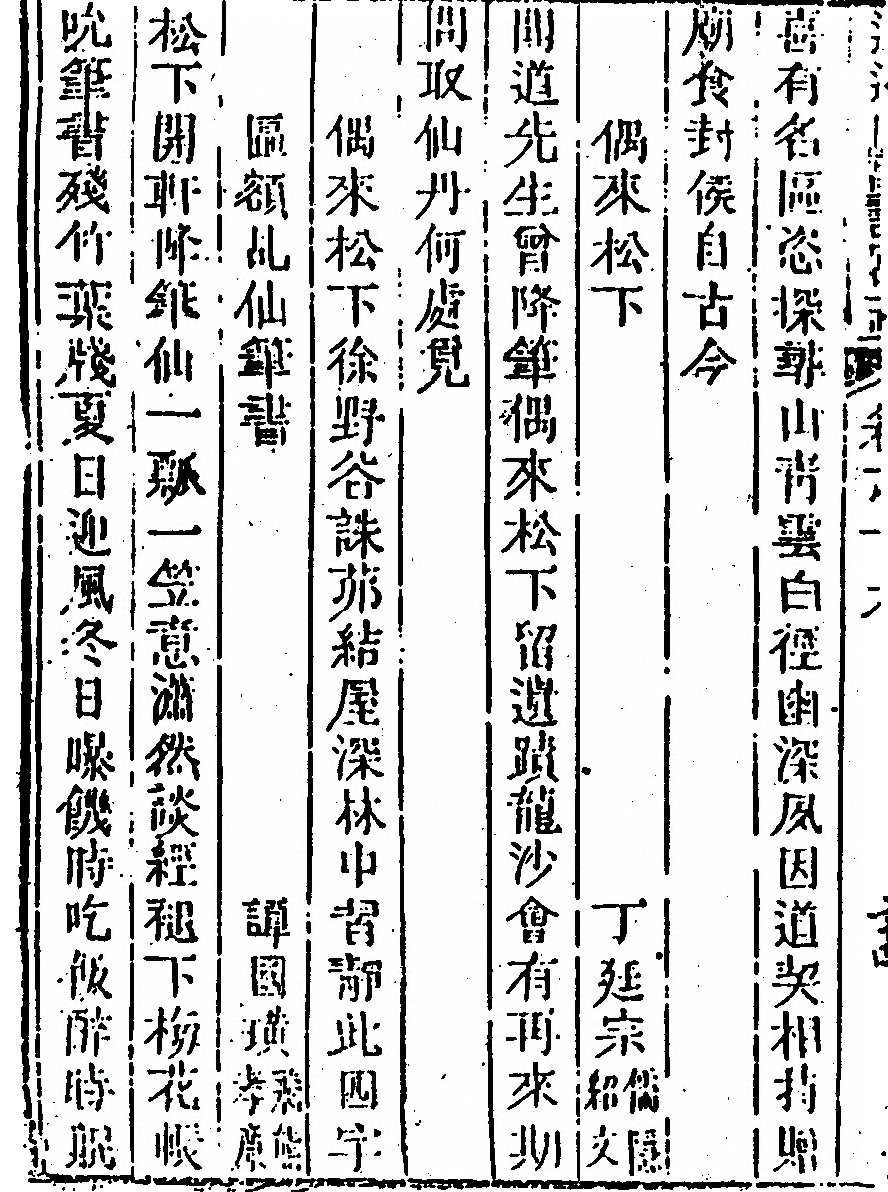 喜有名區恣探尋山青雲白徑幽深夙因道契相持贈
廟食封侯自古今
偶來松下　丁延宗儒隱紹文
聞道先生曾降筆偶來松下留遺蹟龍沙會有再來期
問取仙丹何處覓
偶來松下徐野谷誅茆結屋深林中習靜此四字
匾額乩仙筆書　譚國璜飛熊孝廉
松下開軒降乩仙一瓢一笠意瀟然談經穩下梅花帳
吮筆書殘竹葉牋夏日迎風冬日曝饑時吃飯醉時眠